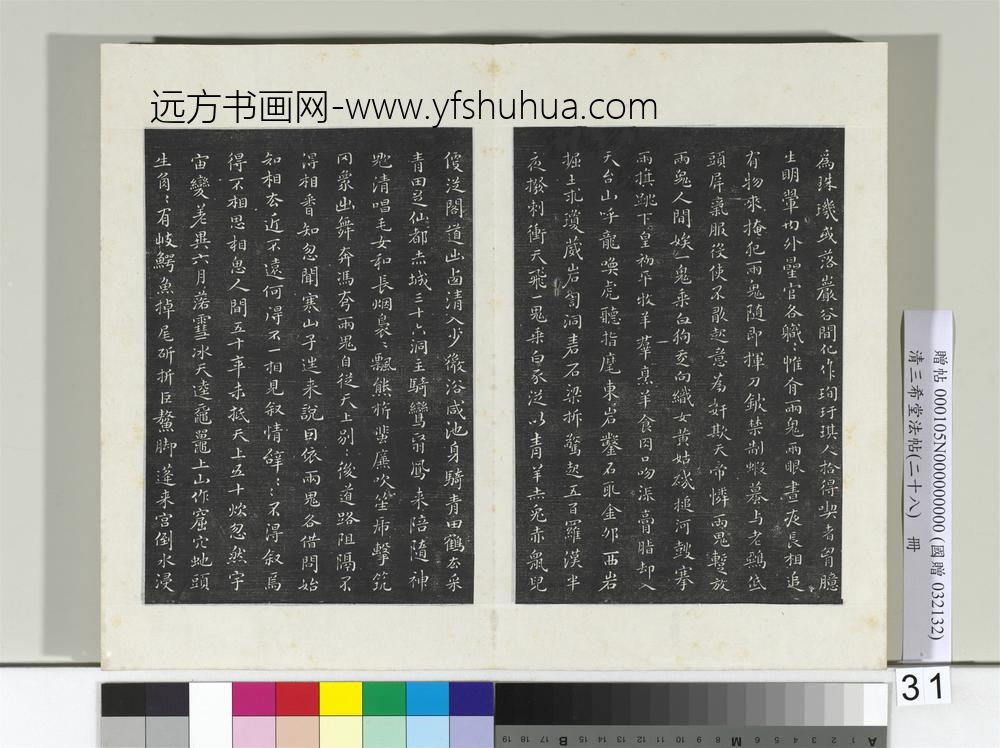 远方书画网-www.yfshuhua.com
為珠璣或落巖谷間化作珣玗琪人拾得喫者胷臆
生明翬内外星官各職〻惟有兩鬼兩眼晝夜長相追
有物來掩犯兩鬼随即揮刀鈹禁制蝦蟇与老鵶低
頭屏氣服役使不敢起意為奸欺天帝憐兩鬼暫放
兩鬼人間娭一鬼乗白狗走向織女黄姑磯槌河皷搴
兩旗跳下皇初平牧羊羣烹羊食肉口吻流膏脂却入
天台山呼龍喚虎聽指麾東岩鑿石取金卯西岩
掘土求瓊葳岩訇洞砉石梁折驚起五百羅漢半
夜撥刺衝天飛一鬼乗白豕從以青羊赤兎赤鼠兒
便從閣道出西清入少微浴咸池身騎青田鶴去采
青田芝仙都赤城三十六洞主騎鸞翳鳳来陪隨神
魈清唱毛女和長烟裊〻飄熊旂蜚廉吹笙虎擊筑
罔象出舞奔馮夷兩鬼自從天上别〻後道路阻隔不
得相香知忽聞寒山子往来說因依兩鬼各借問始
知相去近不遠何得不一相見叙情辭〻不得叙焉
得不相思相思人間五十年未抵天上五十炊忽然宇
宙變差異六月落雪冰天逵黿鼉上山作窟穴虵頭
生角〻有岐鰐魚掉尾斫折巨鰲脚蓬来宫倒水浸
贈帖 000105N000000000 (國贈 032132)
清三希堂法帖(二十八) 冊
31